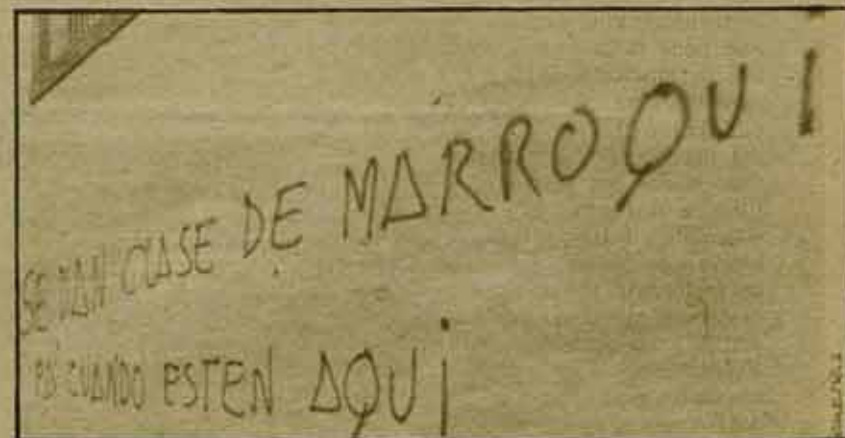 SE DAN CLASE DE MARROQUI
CUANDO ESTEN AQUI